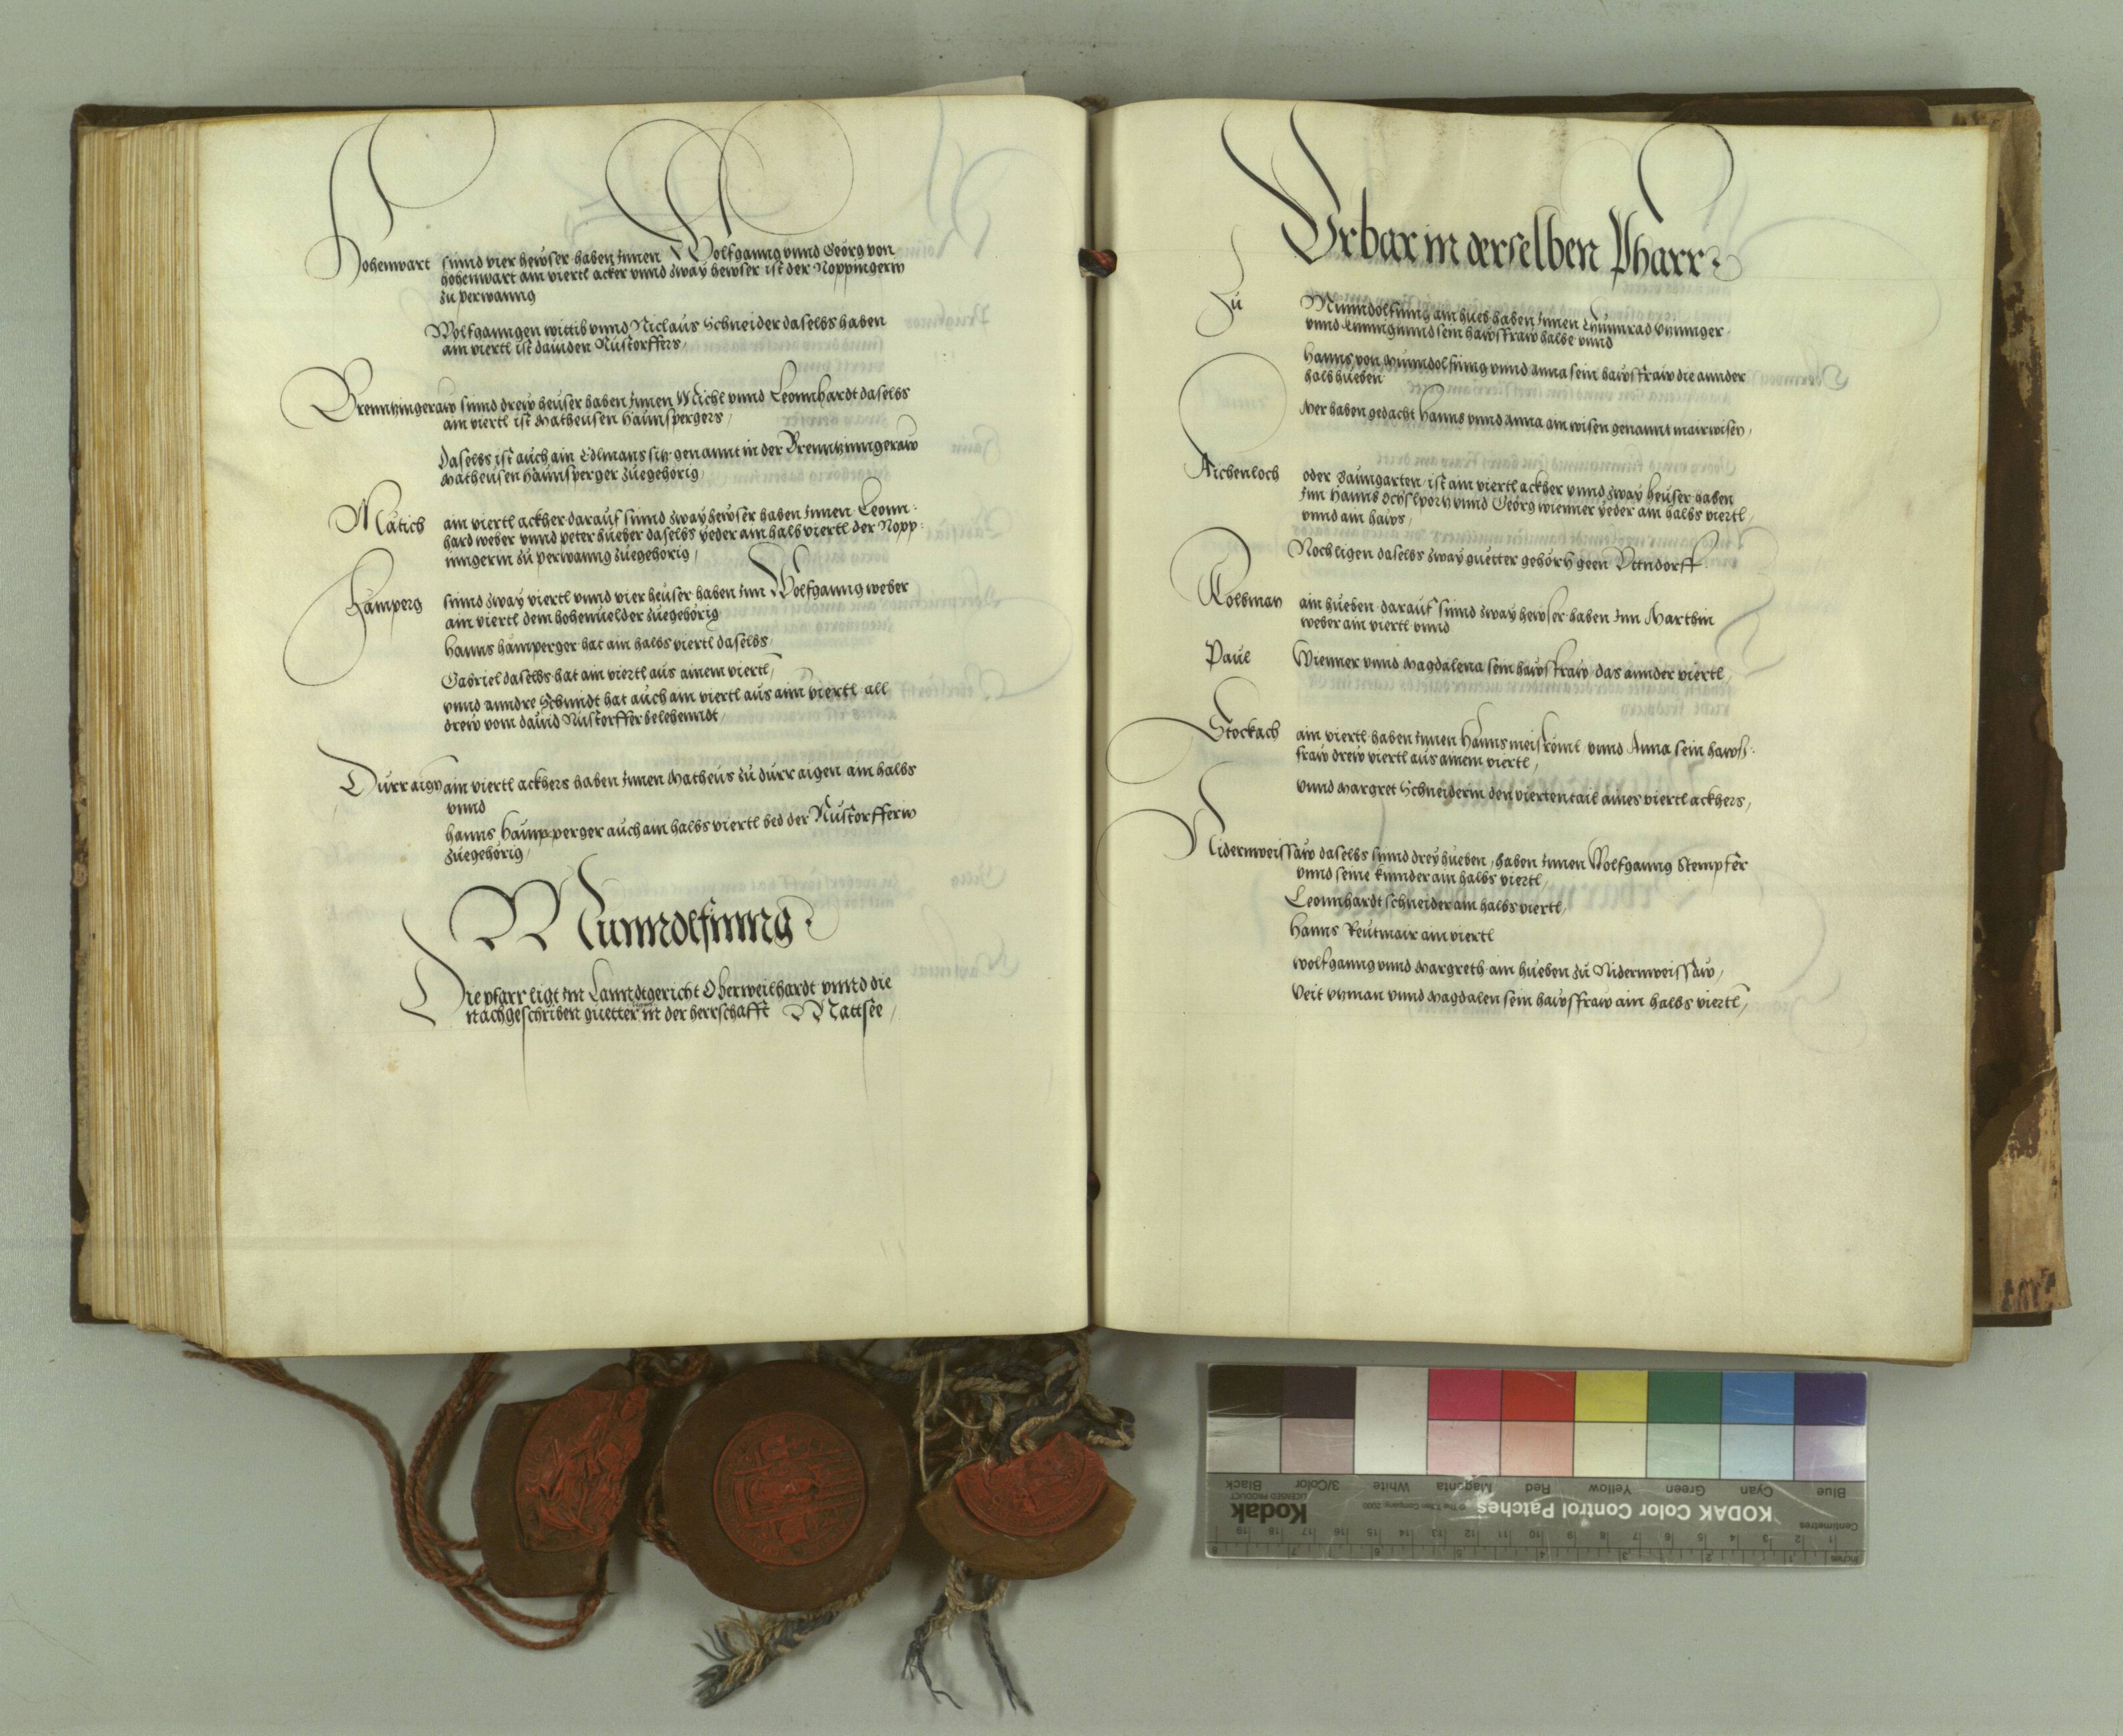 Hohenwart sunnd vier hewser haben Innen Wolfganng vnnd Georg von
hohenwart ain viertl acker vnnd zway hewser ist der Noppingerin
zu perwanng
Wolfganngen wittib vnnd Niclaus Schneider daselbs haben
ain viertl ist dauiden Nustorffers,
Brenntzingeraw sunnd drew heuser haben Innen Michl vnnd Leonnhardt daselbs
ain viertl ist Matheusen Haunspergers,
Daselbs ist auch ain Edlmans sitz genannt in der Brenntzinngeraw
Matheusen Haunsperger zuegehorig
Mátich ain viertl ackher darauf sunnd zway hewser haben Innen Leonn:
hard weber vnnd peter hueber daselbs yeder ain halb viertl der Nopp:
inngerin zu perwanng zuegehorig,
Hámperg sunnd zway viertl vnnd vier heuser haben Inn Wolfganng weber
ain viertl dem hohenuelder zuegehorig
Hanns hamperger hat ain halbs viertl daselbs,
Gabriel daselbs hat ain viertl aus ainem viertl,
vnnd anndre Schmidt hat auch ain viertl aus aim viertl all
drew vom dauid Nustorffer belehenndt,
Dúrr aign ain viertl ackhers haben Innen Matheus zu durr aigen ain halbs
vnnd
hanns haunperger auch ain halbs viertl bed der Nustorfferin
zuegehorig,
Munndolfinng
Die pfarr ligt im Lanndtgericht Oberweilhardt vnnd die
nachgeschriben guetter ligen in der herrschafft Mattsee,
Vrbar in derselben Pharr
Zu Munndolfinng ain hueb haben Innen Chunrad
vnnd sein hawsfraw halbe vnnd
Hanns von Munndolfinng vnnd anna sein hawsfraw die annder
halb hueben
Mer haben gedacht Hanns vnnd anna ain wisen genannt mairwisen,
Aichenloch oder Paungarten ist ain viertl ackher vnnd zway heuser haben
Inn Hanns vnnd Georg wienner yeder ain halbs viertl,
vnnd ain haws,
Noch ligen daselbs zway guetter gehorn geen Vttndorff
Kolbman ain hueben darauf sunnd zway hewser haben Inn Marthin
weber ain viertl vnnd
Paul Wienner vnnd Magdalena sein hawsfraw das annder viertl,
Stockach ain viertl haben Innen Hanns vnnd Anna sein haws:
fraw drew viertl aus ainem viertl,
vnnd Margret Schneiderin den vierten tail aines viertl ackhers,
Nidernweissaw daselbs sunnd drey hueben, haben Innen Wolfganng Stempfer
vnnd seine kinnder ain halbs viertl,
Leonnhardt schneider ain halbs viertl,
Hanns Reutmair ain viertl
Wolfganng vnnd Margreth ain hueben zu Nidernweissaw,
Veit vnnd Magdalen sein hawsfraw ain halbs viertl,
KODAK Color Control Patches
Kodak
LICENSED PRODUCT
© The Tiffen Company, 2000
Blue Cyan Green Yellow Red Magenta White 3/Color Black
Centimetres
Inches